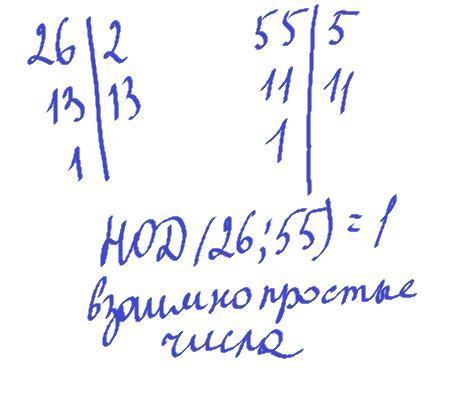 26 | 2 55 | 5
13 | 13 11 | 11
1 | 1 |
НОД (26; 55) = 1
взаимно простые
числа